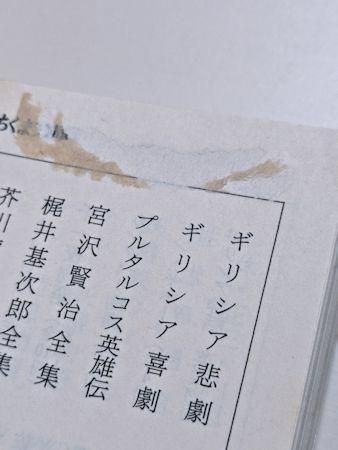 ちく
ギリシア悲劇
ギリシア喜劇
プルタルコス英雄伝
宮沢賢治全集
梶井基次郎全集
芥川